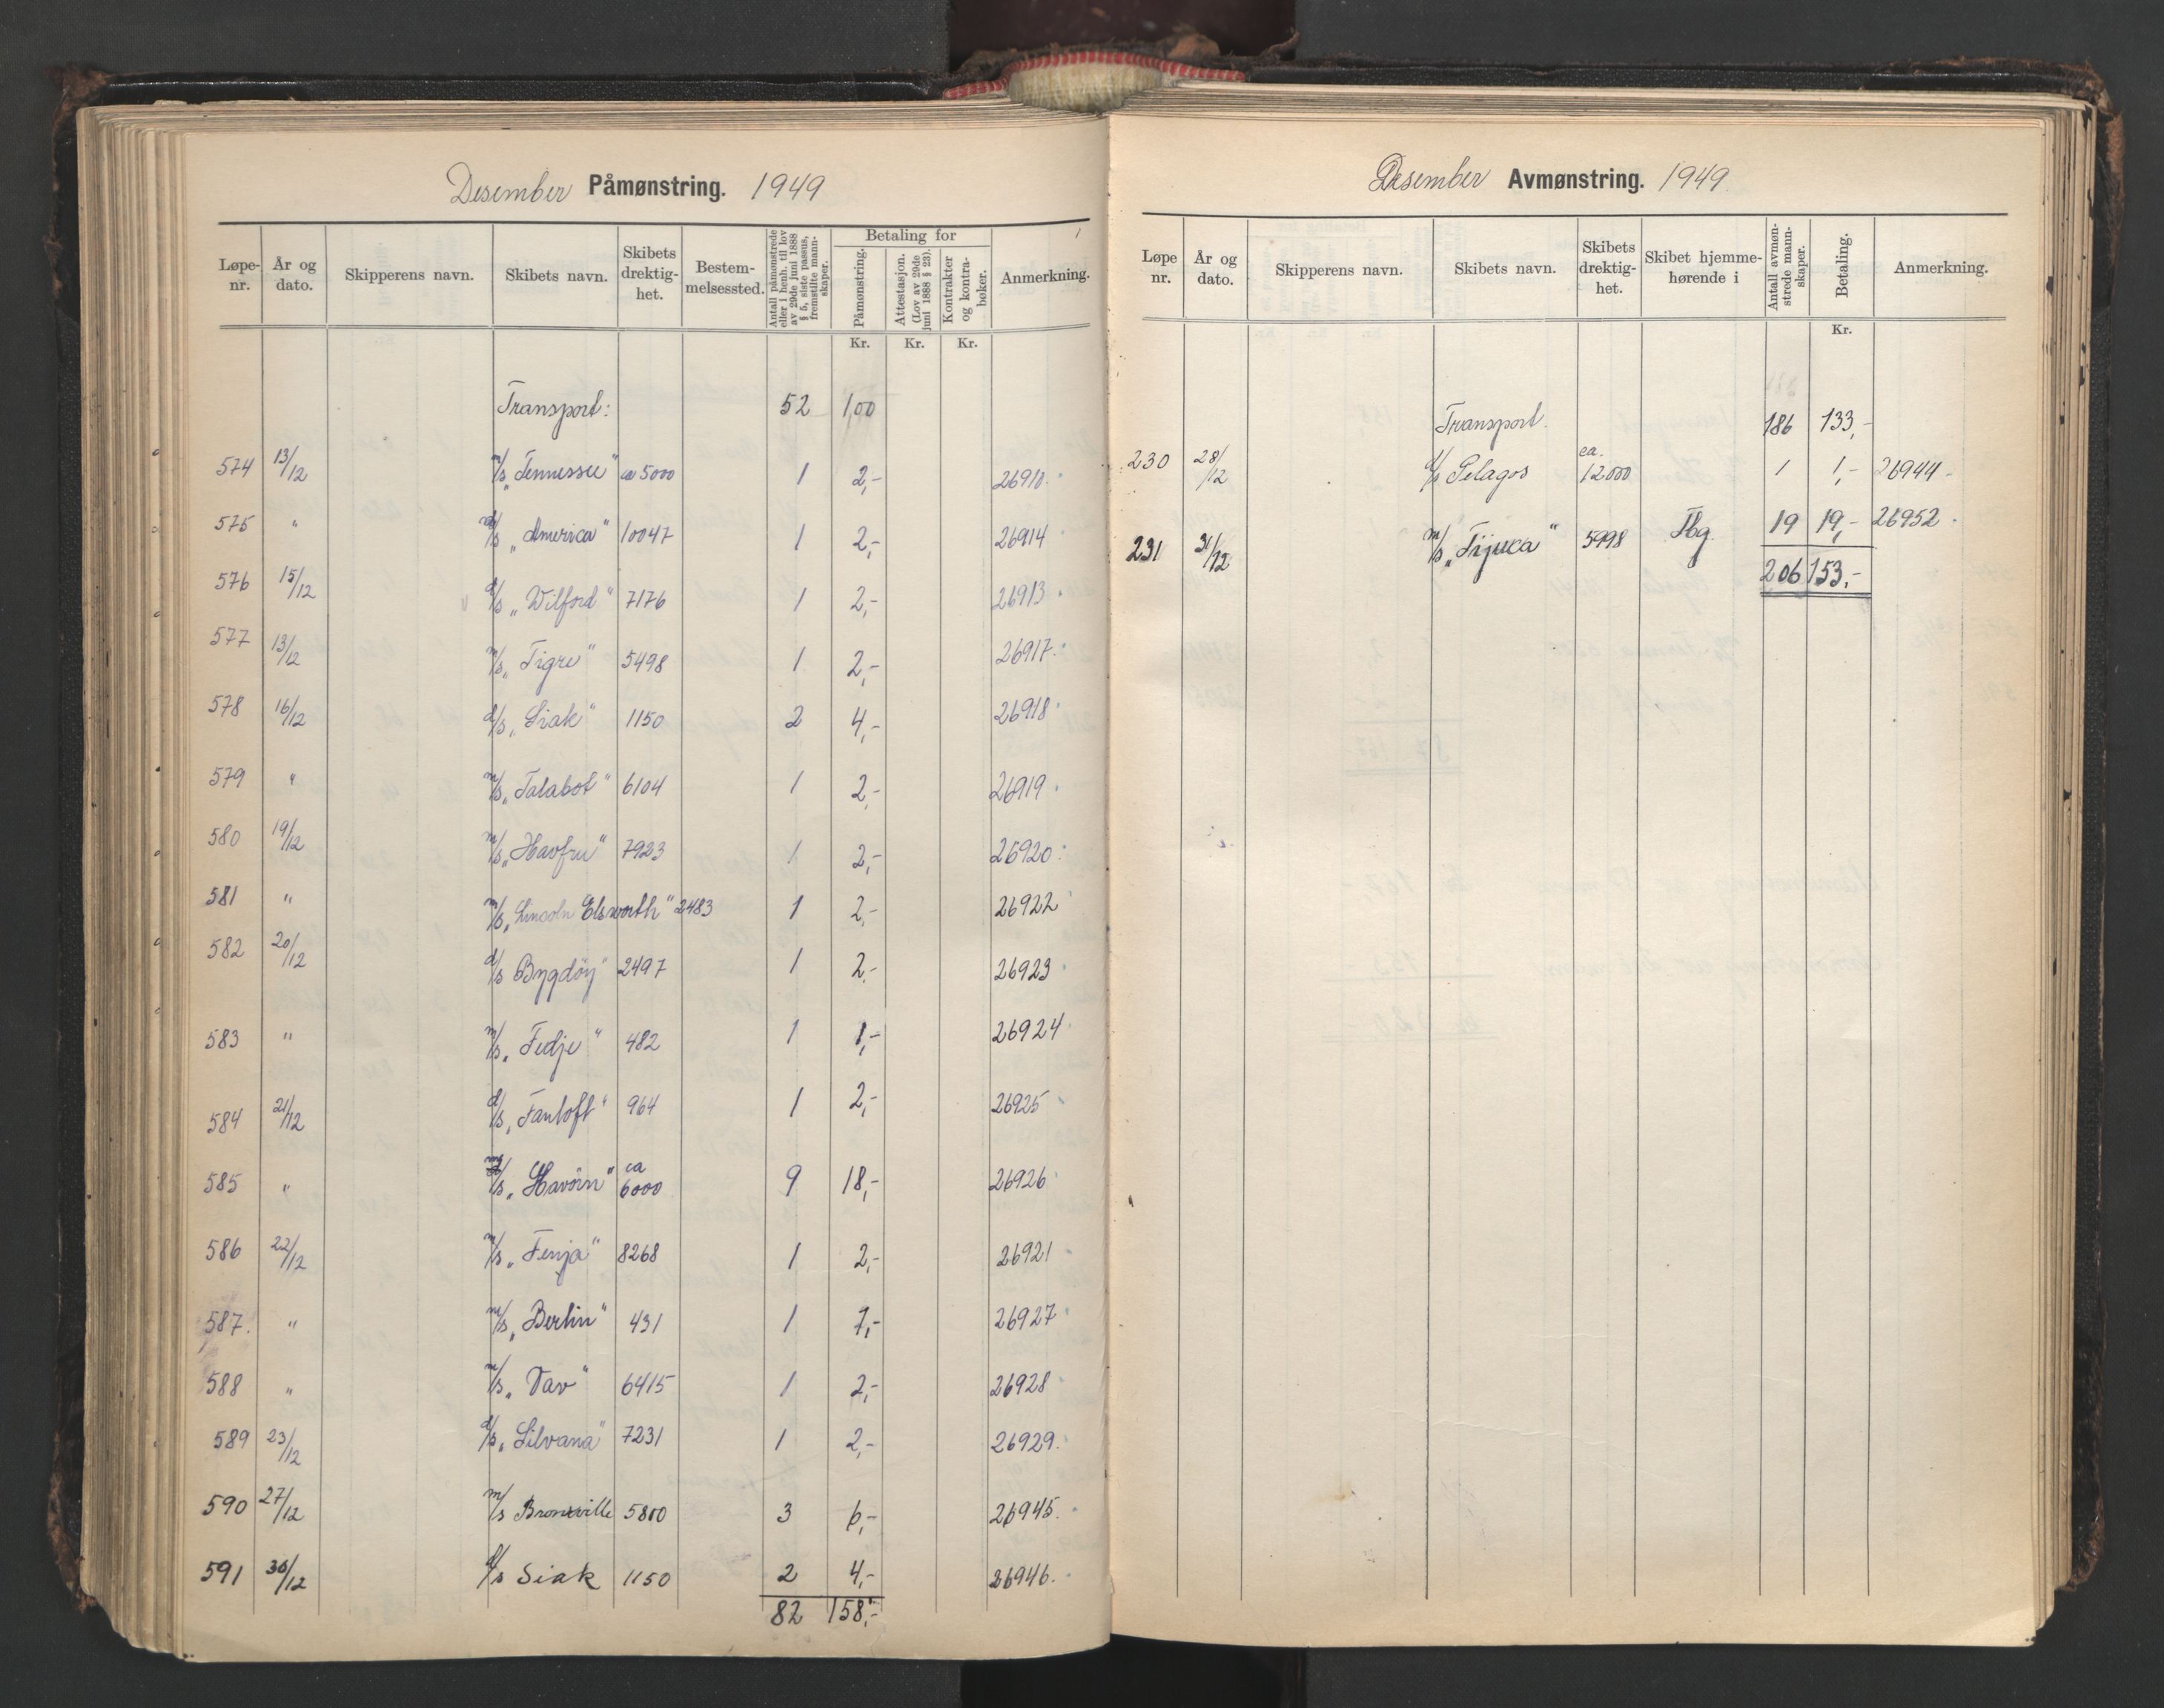 Desember Påmønstring. 1949
Løpe-nr. År og dato. Skipperens navn. Skibets navn. Skibets drektig-het. Bestem-melsessted. Antall påmønstrede eller i henh. til lov av 29de juni 1888 § 5, siste passus, fremstilte mann-skaper. Betaling for Påmønstring. Attestasjon. (Lov av 29de juni 1888 § 23). Kontrakter og kontra-bøker. Anmerkning.
Kr. Kr. Kr.
Transport: 52 1,00
574 13/12 m/s „Tennessee" ca 5000 1 2,- 26910
575 " „America" 10047 1 2,- 26914
576 15/12 d/s „Wilford" 7176 1 2,- 26913
577 13/12 m/s „Tigre" 5498 1 2,- 26917
578 16/12 d/s „Siak" 1150 2 4,- 26918
579 " m/s „Talabot" 6104 1 2,- 26919
580 19/12 m/s „Havfru" 7923 1 2,- 26920
581 " m/s „Lincoln Elsworth" 2483 1 2,- 26922
582 20/12 d/s Bygdöy" 2497 1 2,- 26923
583 " m/s „Fedje" 482 1 1,- 26924
584 21/12 d/s „Fantoft" 964 1 2,- 26925
585 " m/s „Havörn" ca 6000 9 18,- 26926
586 22/12 m/s „Fenja" 8268 1 2,- 26921
587. " m/s „Berlin" 431 1 1,- 26927
588 " m/s „Vav" 6415 1 2,- 26928
589 23/12 d/s „Silvana" 7231 1 2,- 26929
590 27/12 m/s Bronxville 5800 3 6,- 26945
591 30/12 d/s Siak 1150 2 4,- 26946
82 158,-
Desember Avmønstring. 1949
Løpe nr. År og dato. Skipperens navn. Skibets navn. Skibets drektig-het. Skibet hjemme-hørende i Antall avmøn-strede mann-skaper. Betaling. Anmerkning.
Kr.
Transport. 186 133,-
230 28/12 d/s Pelagos ca. 12000 1 1,- 26944
231 31/12 m/s „Tijuca" 5998 Tbg. 19 19,- 26952
206 153,-